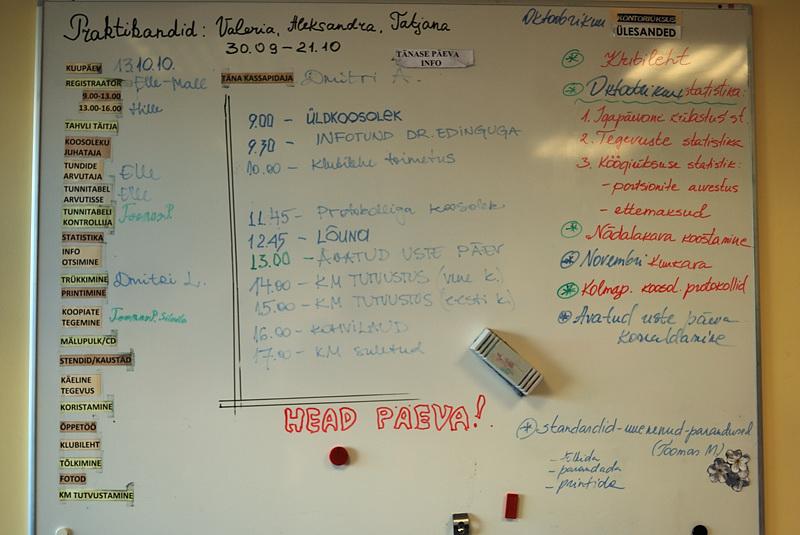 Praktikandid: Valeria, Aleksandra, Tatjana
30.09 - 21.10
TÄNASE PÄEVA INFO
KUUPÄEV 13.10.10.
REGISTRAATOR Elle-Mall
9.00-13.00
13.00-16.00 Hille
TAHVLI TÄITJA
KOOSOLEKU JUHATAJA
TUNDIDE ARVUTAJA Elle
TUNNITABEL ARVUTISSE Elle
TUNNITABELI KONTROLLIJA Toomas P.
STATISTIKA
INFO OTSIMINE
TRÜKKIMINE Dmitri L.
PRINTIMINE
KOOPIATE TEGEMINE Toomas P.
MÄLUPULK/CD
STENDID/KAUSTAD
KÄELINE TEGEVUS
KORISTAMINE
ÕPPETÖÖ
KLUBILEHT
TÕLKIMINE
FOTOD
KM TUTVUSTAMINE
TÄNA KASSAPIDAJA Dmitri A.
9.00 - ÜLDKOOSOLEK
9.30 - INFOTUND DR. EDINGUGA
10.00 - Klubilehe toimetus
11.45 - Protokolliga koosolek
12.45 - LÕUNA
13.00 - AVATUD USTE PÄEV
14.00 - KM TUTVUSTUS (vene k.)
15.00 - KM TUTVUSTUS (eesti k.)
16.00 - KOHVILAUD
17.00 - KM suletud
HEAD PAEVA!
Oktoobrikuu KONTORIÜKSUS
ÜLESANDED
Klubileht
Oktoobrikuu statistika:
1. Igapäevani külastus st.
2. Tegevuste statistika
3. Köögiüksuse statistik:
- portsionite arvestus
- ettemaksud
Nädalakava koostamine
Novembri kuukava
Kolmap. koosol. protokollid
Avatud uste päeva korraldamine
standardid-uuenenud-parandused
(Toomas M)
- tõlkida
- parandada
- printida